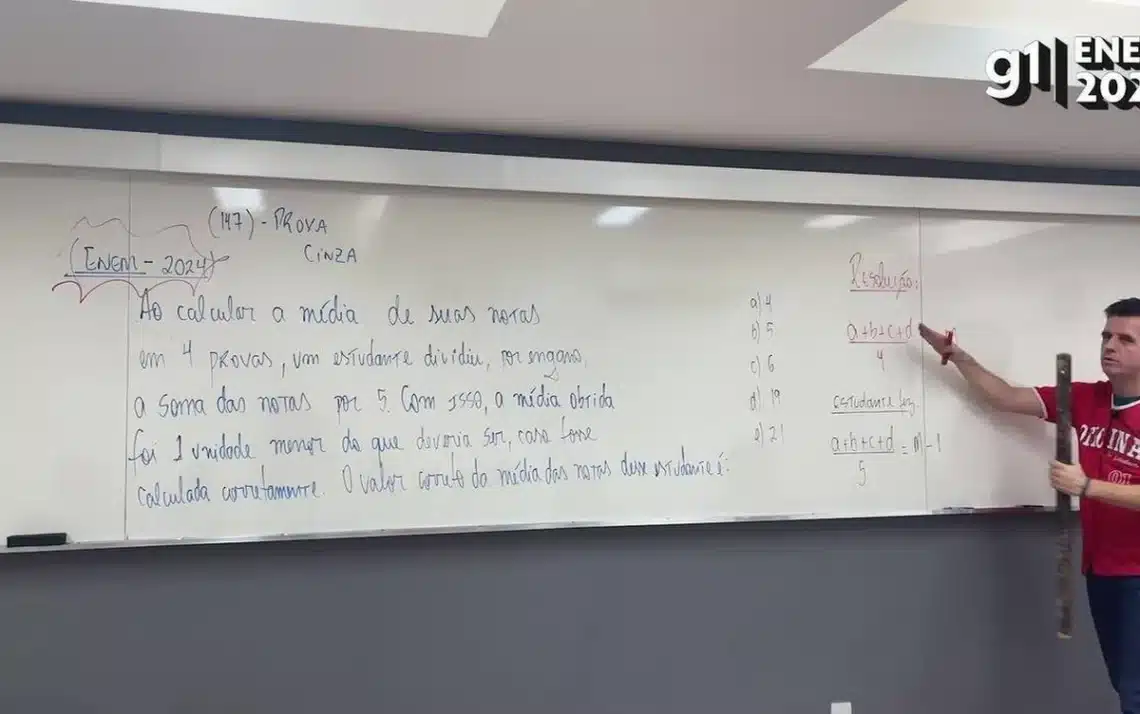 g1 ENE
202
(147) - PROVA
CINZA
(ENEM - 2024)
Ao calcular a média de suas notas
em 4 provas, um estudante dividiu, por engano,
a soma das notas por 5. Com isso, a média obtida
foi 1 unidade menor do que deveria ser, caso fosse
calculada corretamente. O valor correto da média das notas desse estudante é:
a) 4
b) 5
c) 6
d) 19
e) 21
Resolução:
a+b+c+d
4
estudante fez
a+b+c+d = m - 1
5